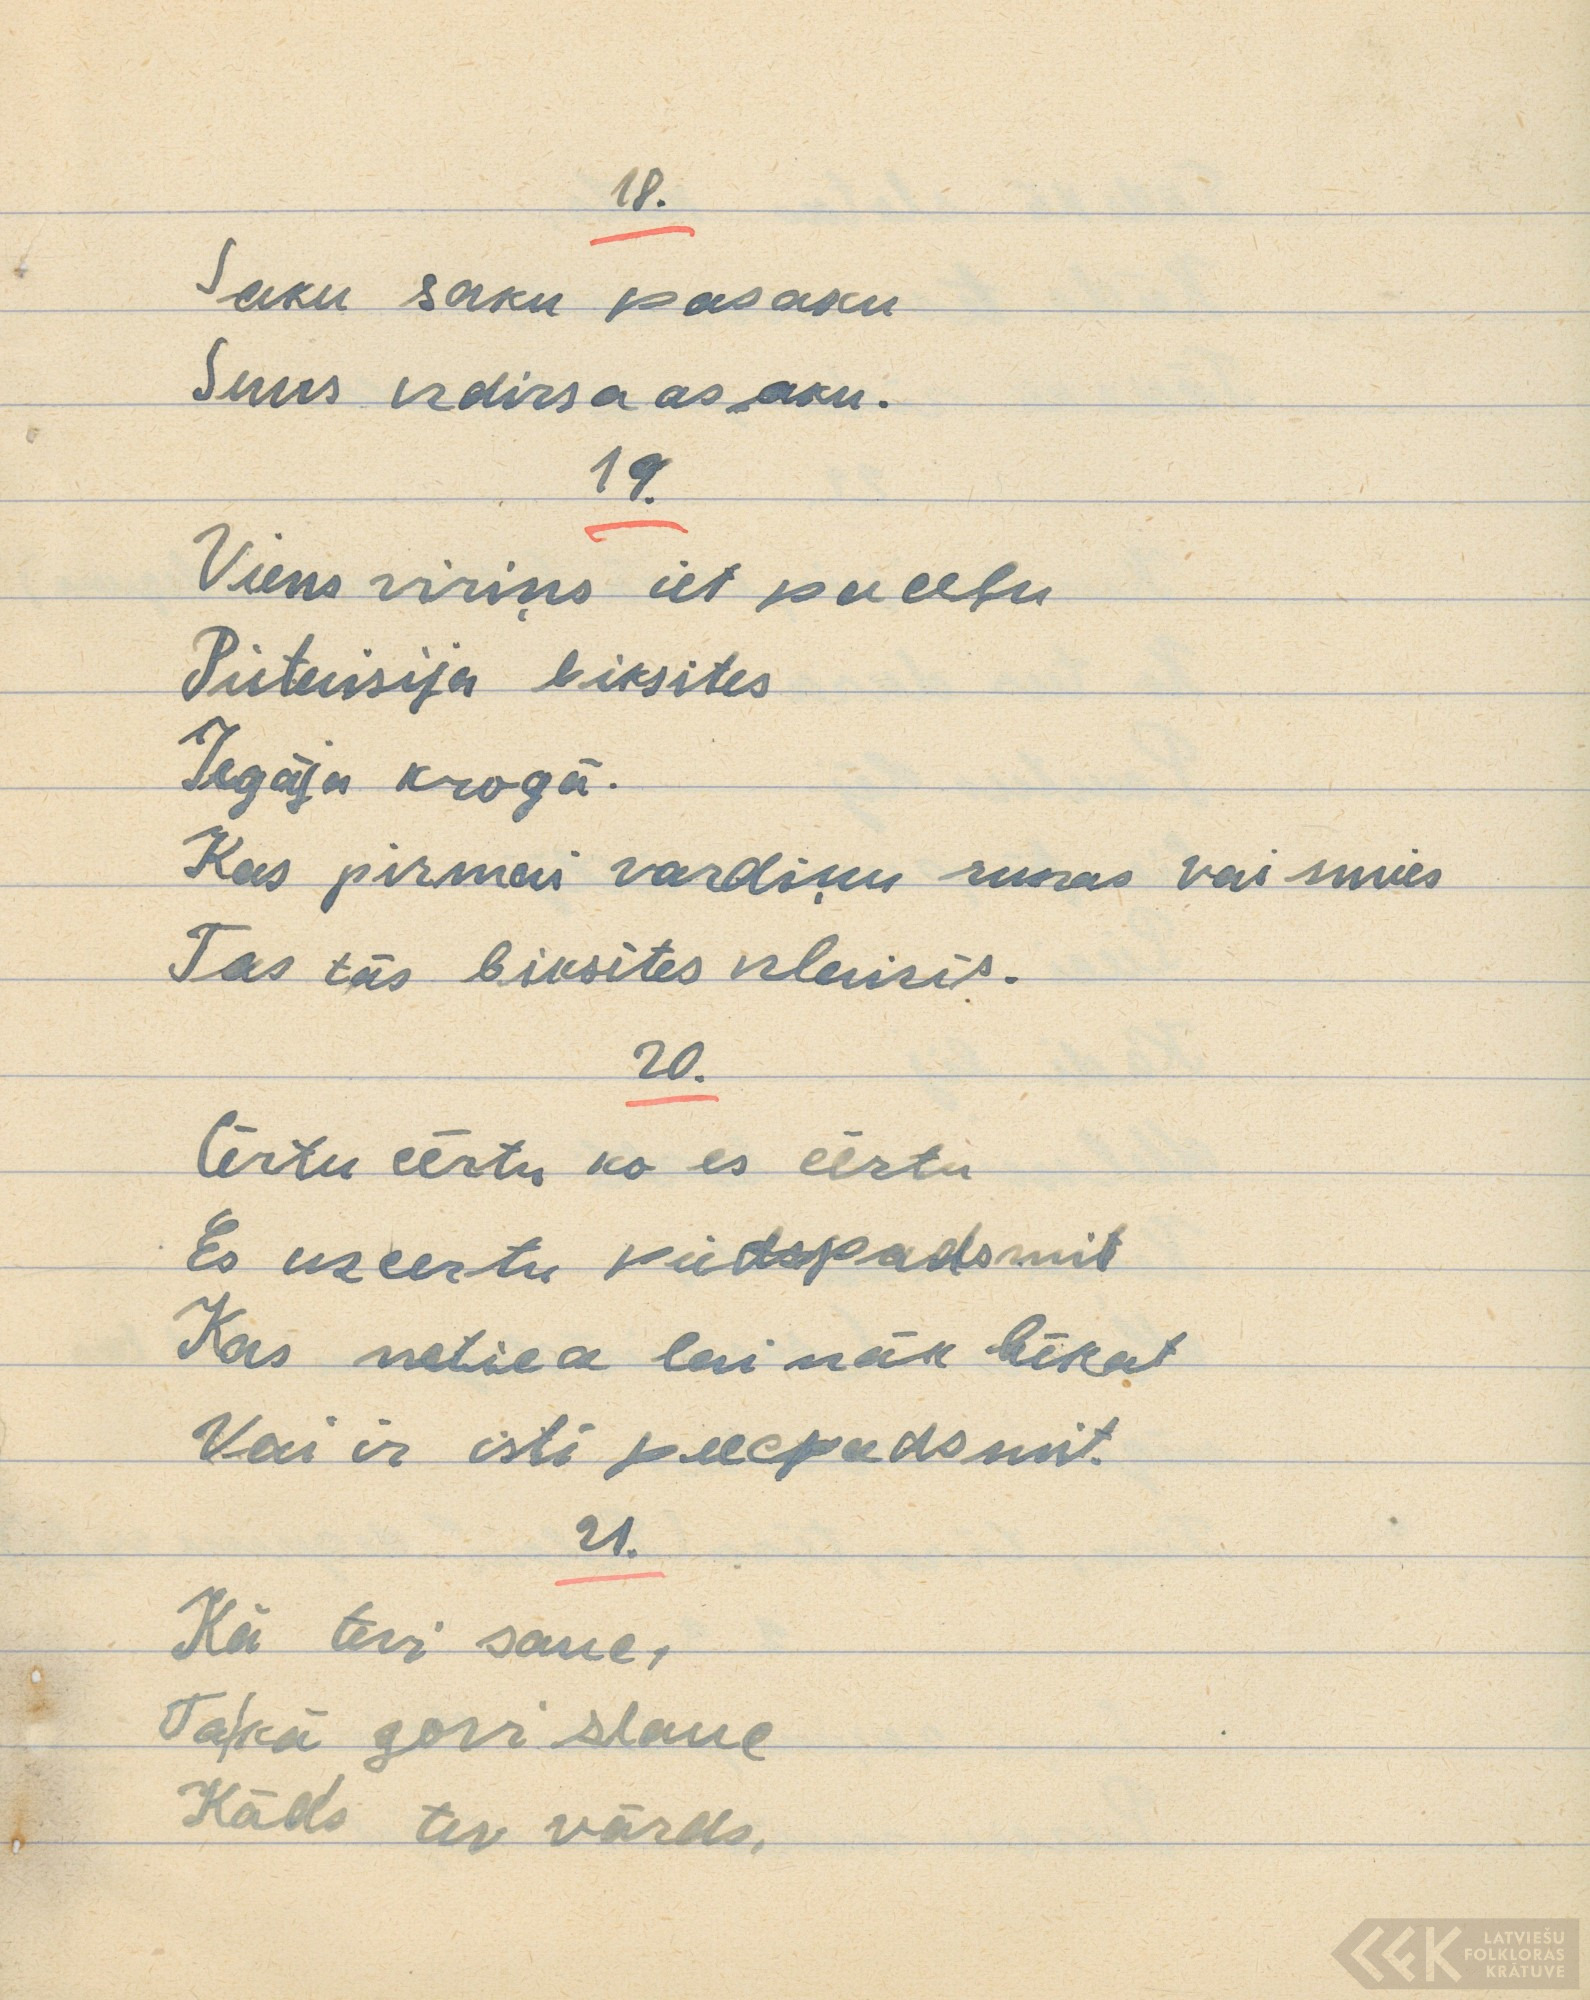 18.
Saku saku pasaku
Suns izdirsa asaku.
19.
Viens viriņs iet pa celu
Pietaisija biksites
Iegāja krogā.
Kas pirmai vardiņu runas vai smies
Tas tās biksites izlaizis.
20.
Cērtu cērtu ko es cērtu
Es uzcertu piedspadsmit
Kas netica lai nāk lūkat
Vai ir isti piecpadsmit.
21.
Kā tevi sauc,
Takā govi slauc
Kāds tev vārds,
LATVIEŠU
FOLKLORAS
KRĀTUVE